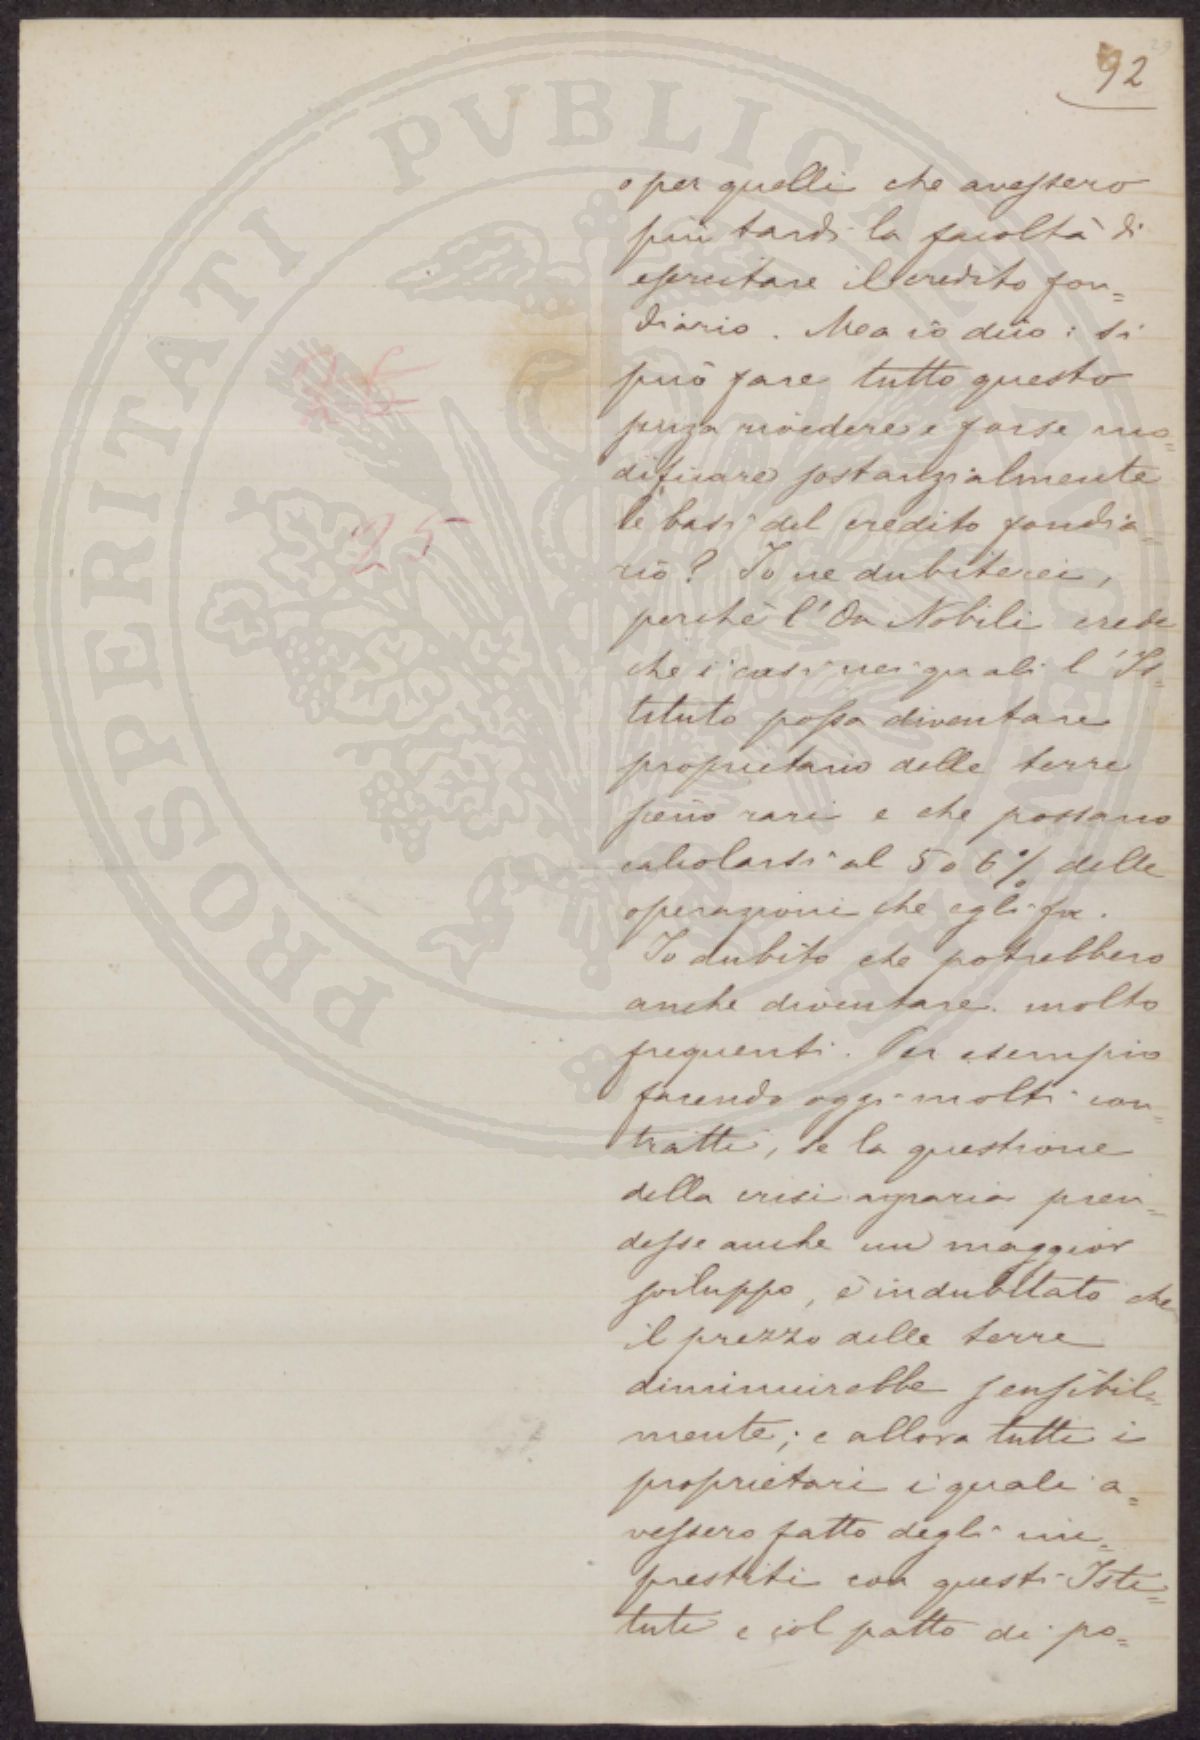 92
PROSPERITATI PVBLICAE
26
25
o per quelli che avessero
più tardi la facoltà di
esercitare il credito fon=
diario. Ma io dico: si
può fare tutto questo
senza rivedere e forse mo=
dificare sostanzialmente
le basi del credito fondia=
rio? Io ne dubiterei,
perchè l'On Nobili crede
che i casi nei quali l'Is=
tituto possa diventare
proprietario delle terre
sieno rari e che possano
calcolarsi al 5 o 6 % delle
operazioni che egli fa.
Io dubito che potrebbero
anche diventare molto
frequenti. Per esempio
facendo oggi molti con=
tratti, se la questione
della crisi agraria pren=
desse anche un maggior
sviluppo, è indubitato che
il prezzo delle terre
diminuirebbe sensibil=
mente; e allora tutti i
proprietari i quali a=
vessero fatto degli im=
prestiti con questi Isti=
tuti e col patto di po=